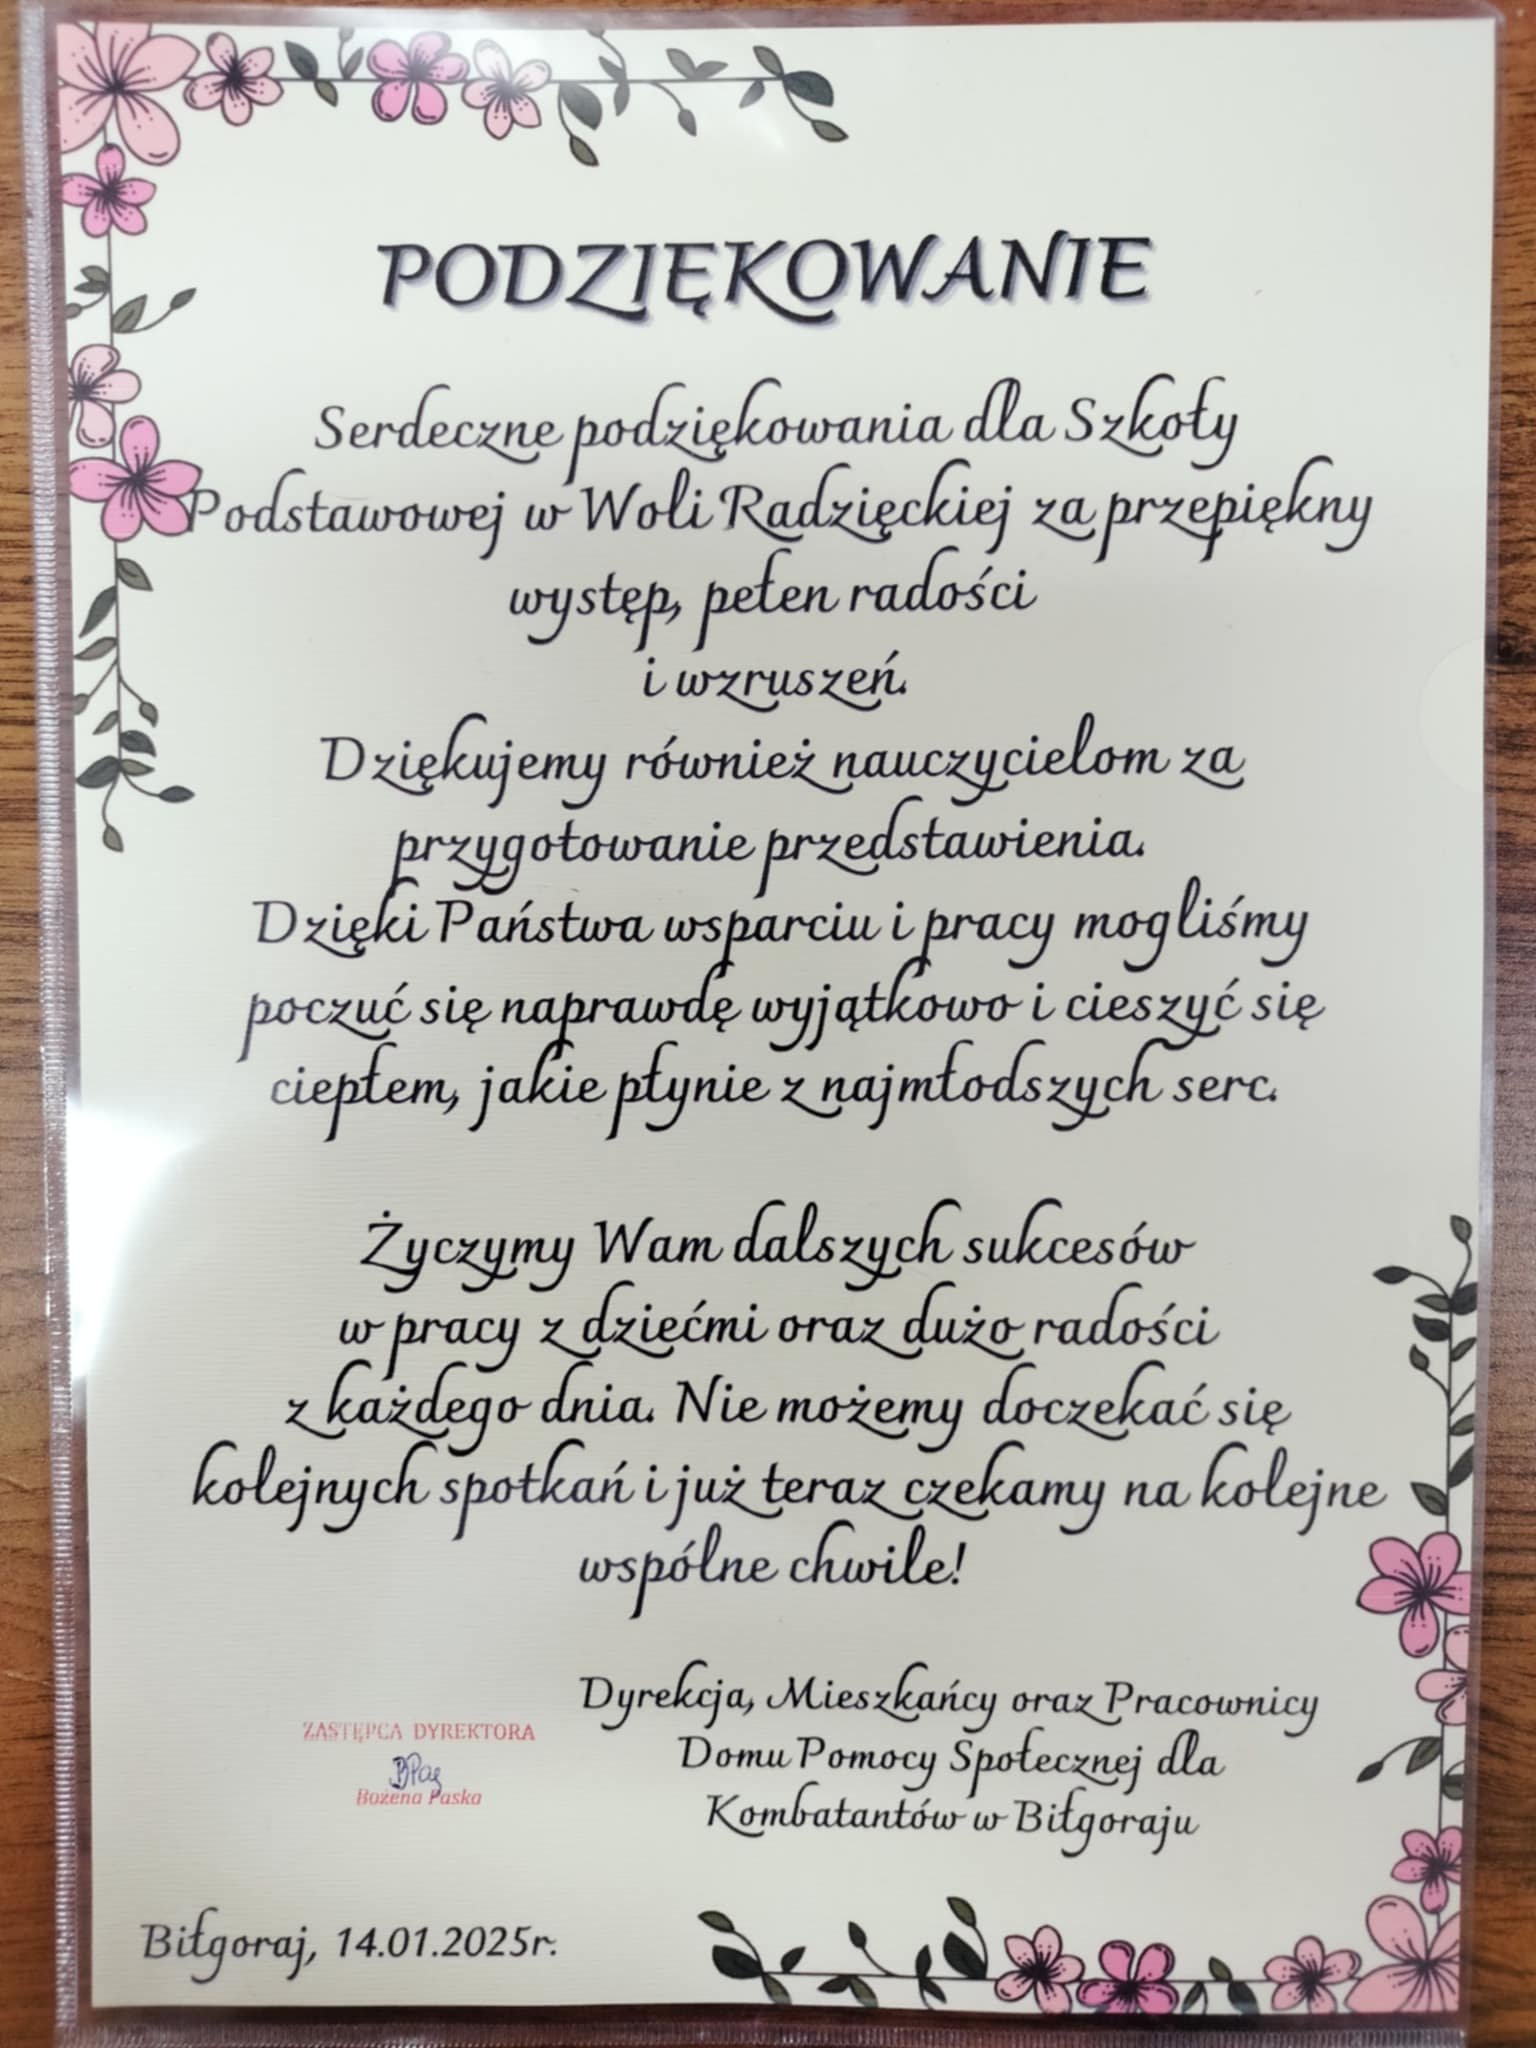 PODZIĘKOWANIE
Serdeczne podziękowania dla Szkoły
Podstawowej w Woli Radzięckiej za przepiękny
występ, pełen radości
i wzruszeń.
Dziękujemy również nauczycielom za
przygotowanie przedstawienia.
Dzięki Państwa wsparciu i pracy mogliśmy
poczuć się naprawdę wyjątkowo i cieszyć się
ciepłem, jakie płynie z najmłodszych serc.
Życzymy Wam dalszych sukcesów
w pracy z dziećmi oraz dużo radości
z każdego dnia. Nie możemy doczekać się
kolejnych spotkań i już teraz czekamy na kolejne
wspólne chwile!
Dyrekcja, Mieszkańcy oraz Pracownicy
Domu Pomocy Społecznej dla
Kombatantów w Biłgoraju
ZASTĘPCA DYREKTORA
Bożena Paska
Biłgoraj, 14.01.2025r.